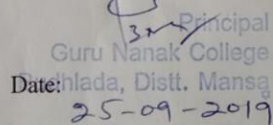 Principal
Guru Nanak College
Date: Budhlada, Distt. Mansa
25-09-2019